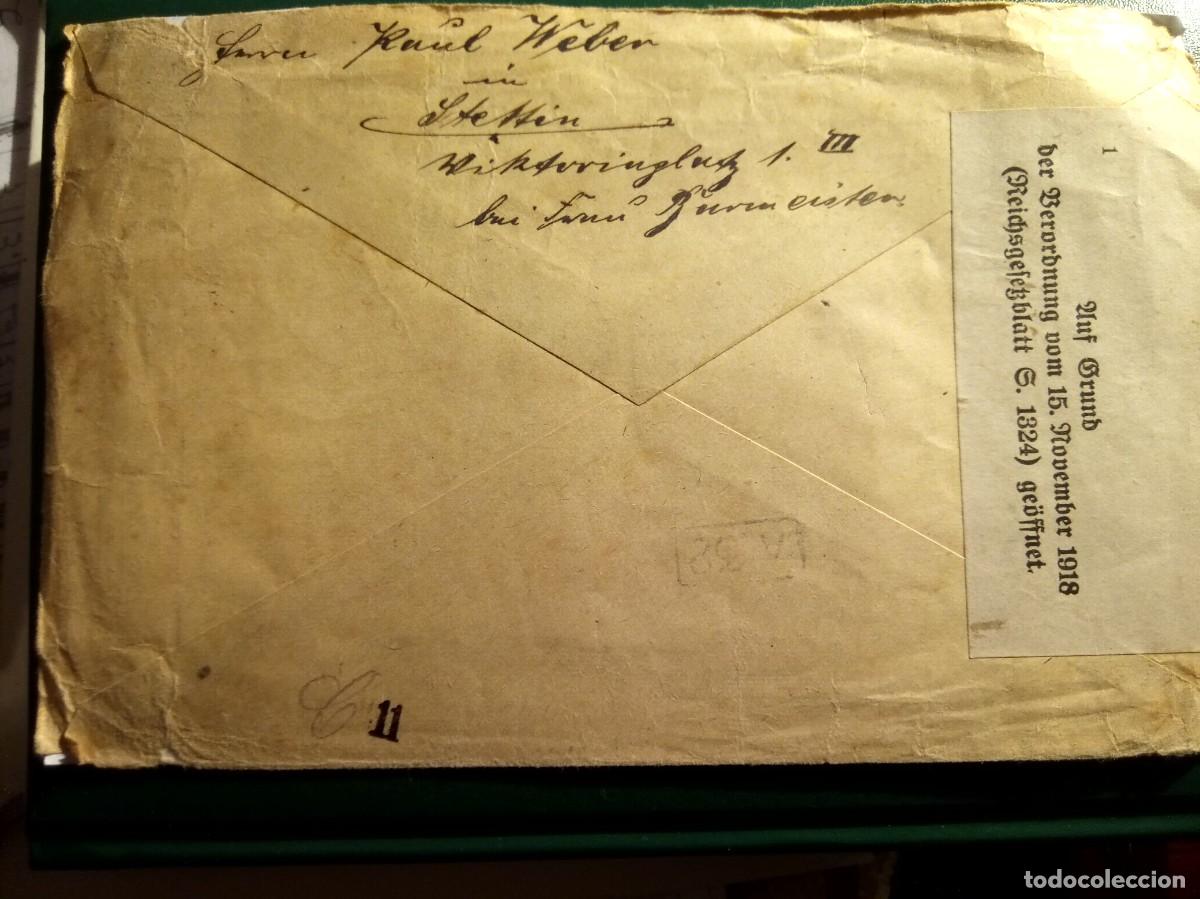 Herrn Paul Weber
in
Stettin
Viktoriaplatz 1. III
bei Frau Burmeister.
1
Auf Grund
der Verordnung vom 15. November 1918
(Reichsgesetzblatt S. 1324) geöffnet.
11
todocoleccion